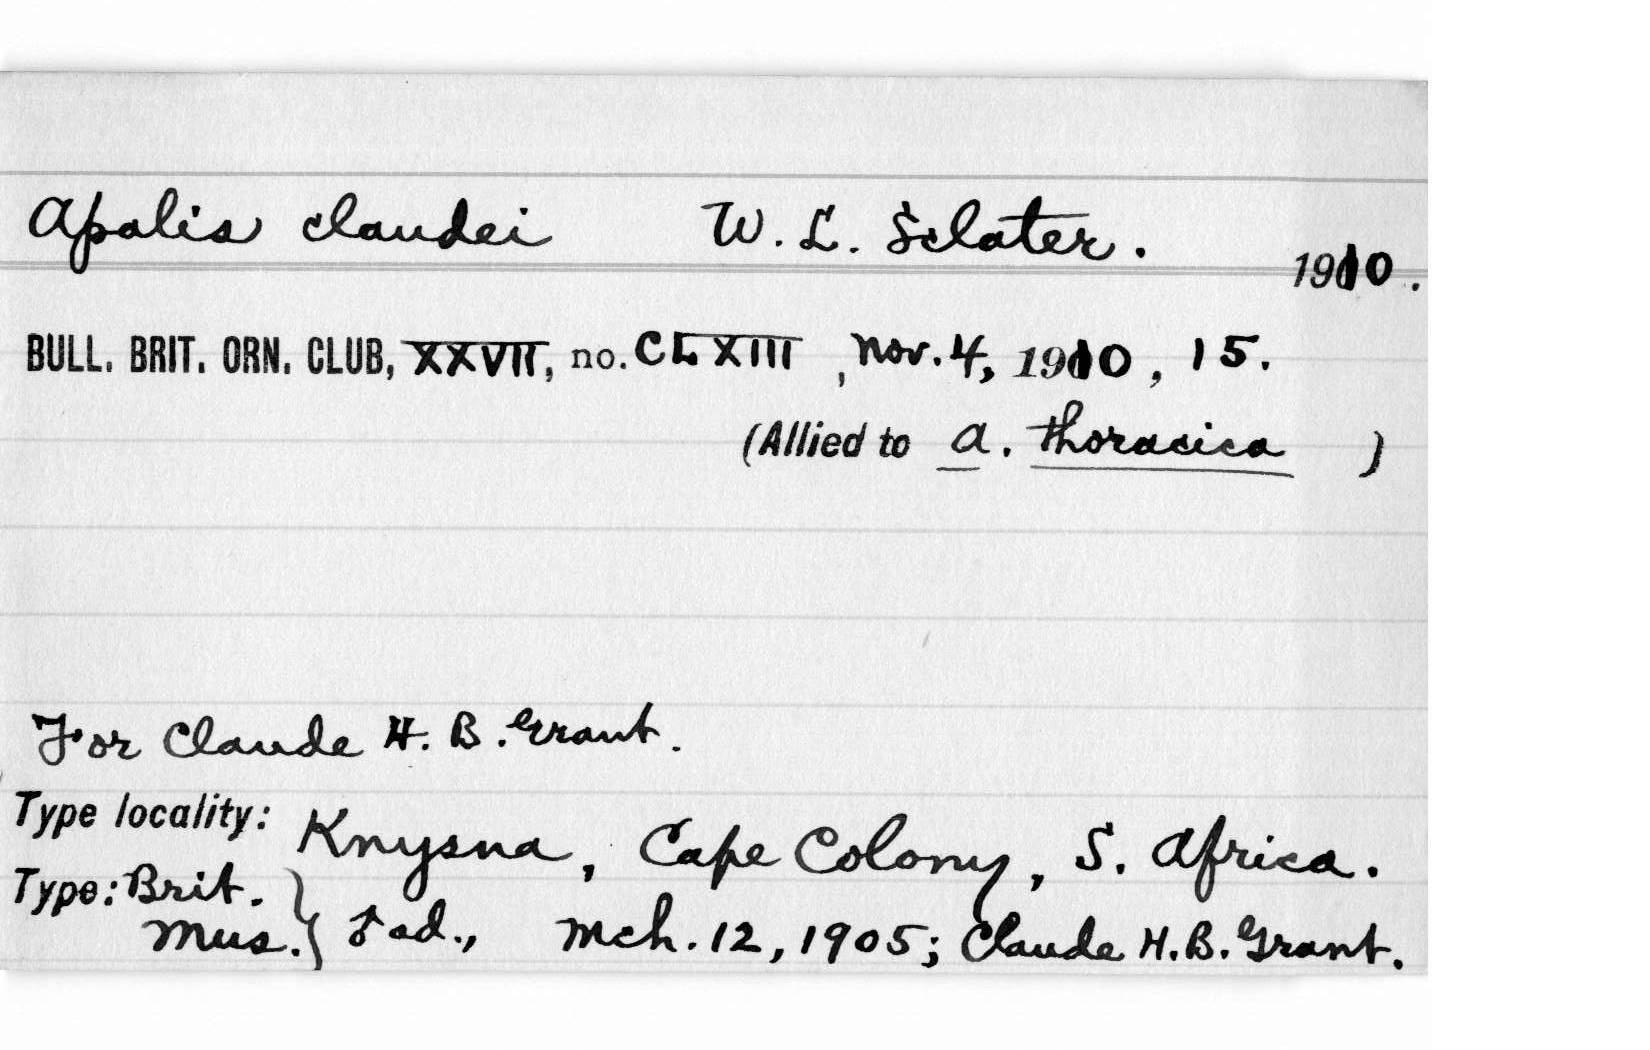 Apalis claudei W. L. Sclater.
1910.
BULL. BRIT. ORN. CLUB, XXVII, no. CLXIII, Nov. 4, 1910, 15.
(Allied to A. thoracica )
For Claude H. B. Grant.
Type locality: Knysna, Cape Colony, S. Africa.
Type: Brit.
Mus. } ♂ ad., Mch. 12, 1905; Claude H. B. Grant.